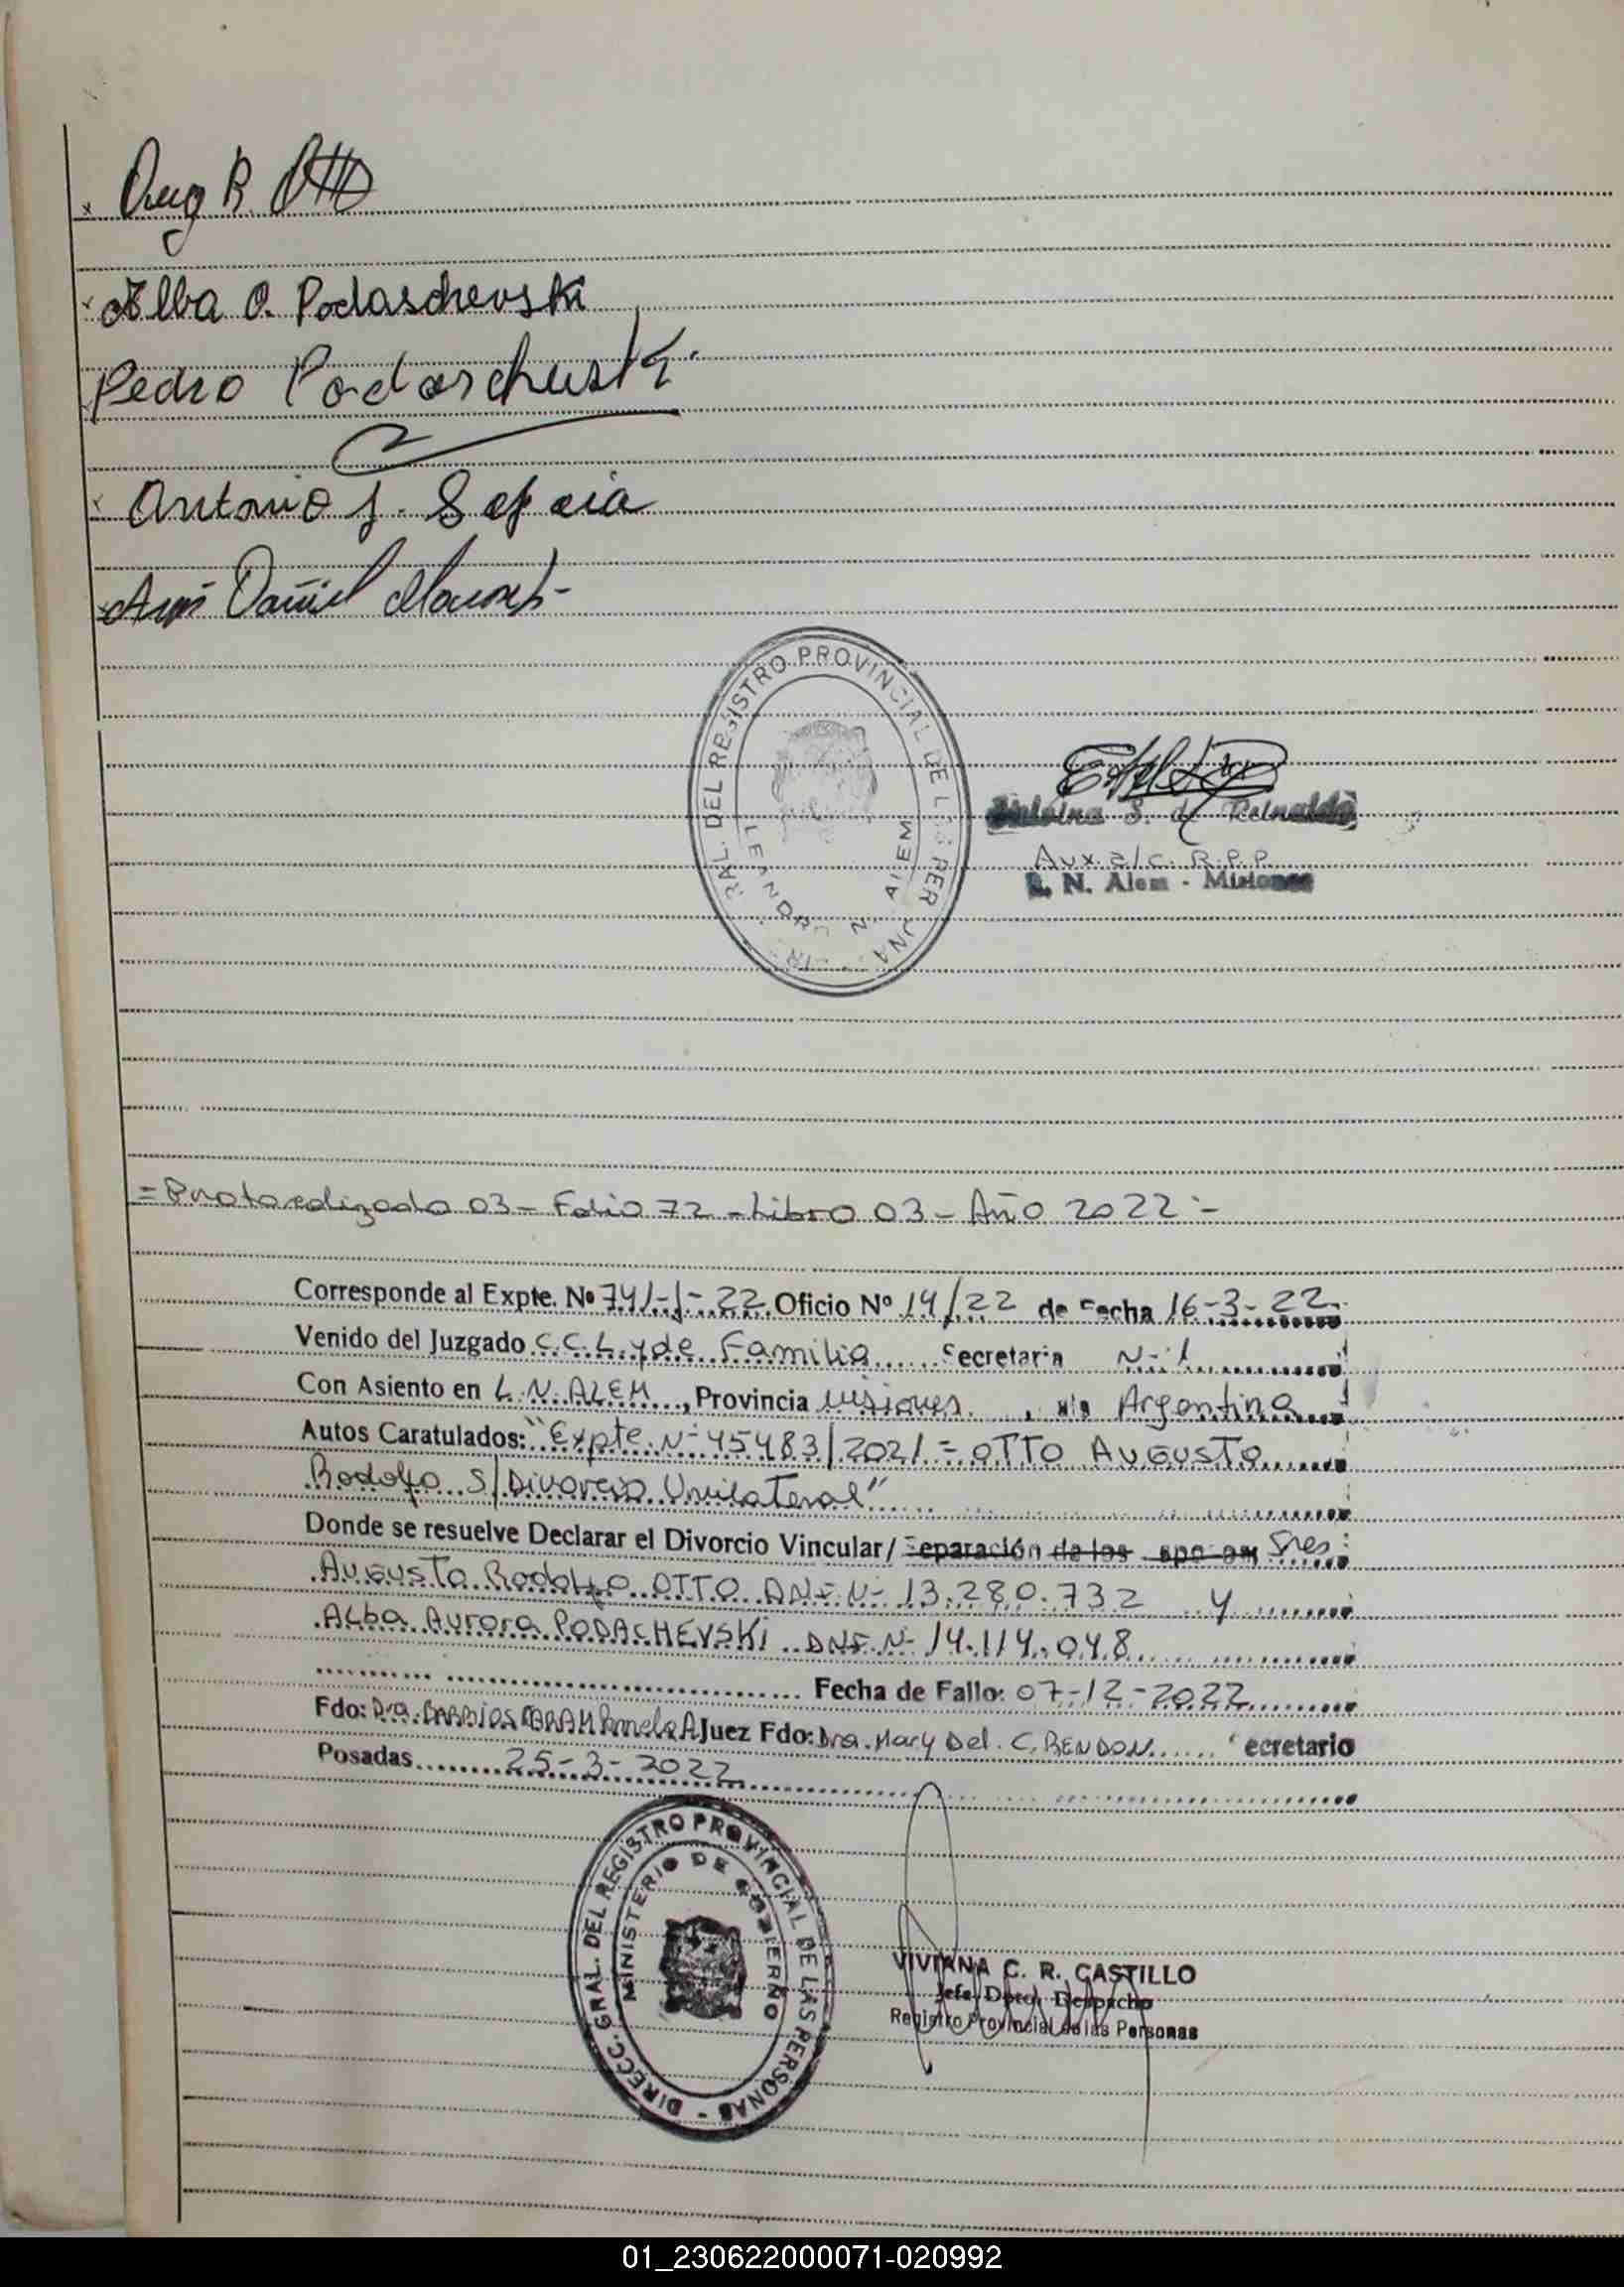 x Aug R. OTTO
x Alba A. Podaschevski
Pedro Podaschevski
x Antonio J.
x Daniel
RAL. DEL REGISTRO PROVINCIAL DE LAS PER
N. ALEM
S. de Reinaldo
Aux. a/c. R.P.P.
L. N. Alem - Misiones
= Protocolizado 03 - Folio 72 - Libro 03 - Año 2022 =
Corresponde al Expte. Nº 741-J-22 Oficio Nº 14/22 de Fecha 16-3-22
Venido del Juzgado C.C.L. y de Familia Secretaria Nº 1
Con Asiento en L.N. ALEM, Provincia Misiones, Argentina
Autos Caratulados: "Expte. Nº 45483/2021 = OTTO AUGUSTO
Rodolfo S/Divorcio Unilateral"
Donde se resuelve Declarar el Divorcio Vincular/ Separación de los Sres:
AUGUSTO Rodolfo OTTO DNI Nº 13.280.732 y
ALba AURORA PODACHEVSKI DNI Nº 14.114.048
Fecha de Fallo: 07-12-2022
Fdo: Dra. BARRIOS Pamela A Juez Fdo: Dra. Mary Del. C. RENDON Secretario
Posadas 25-3-2022
DIRECC. GRAL. DEL REGISTRO PROVINCIAL DE LAS PERSONAS -
MINISTERIO DE GOBIERNO
VIVIANA C. R. CASTILLO
Jefa Dpto. Despacho
Registro Provincial de las Personas
01_230622000071-020992